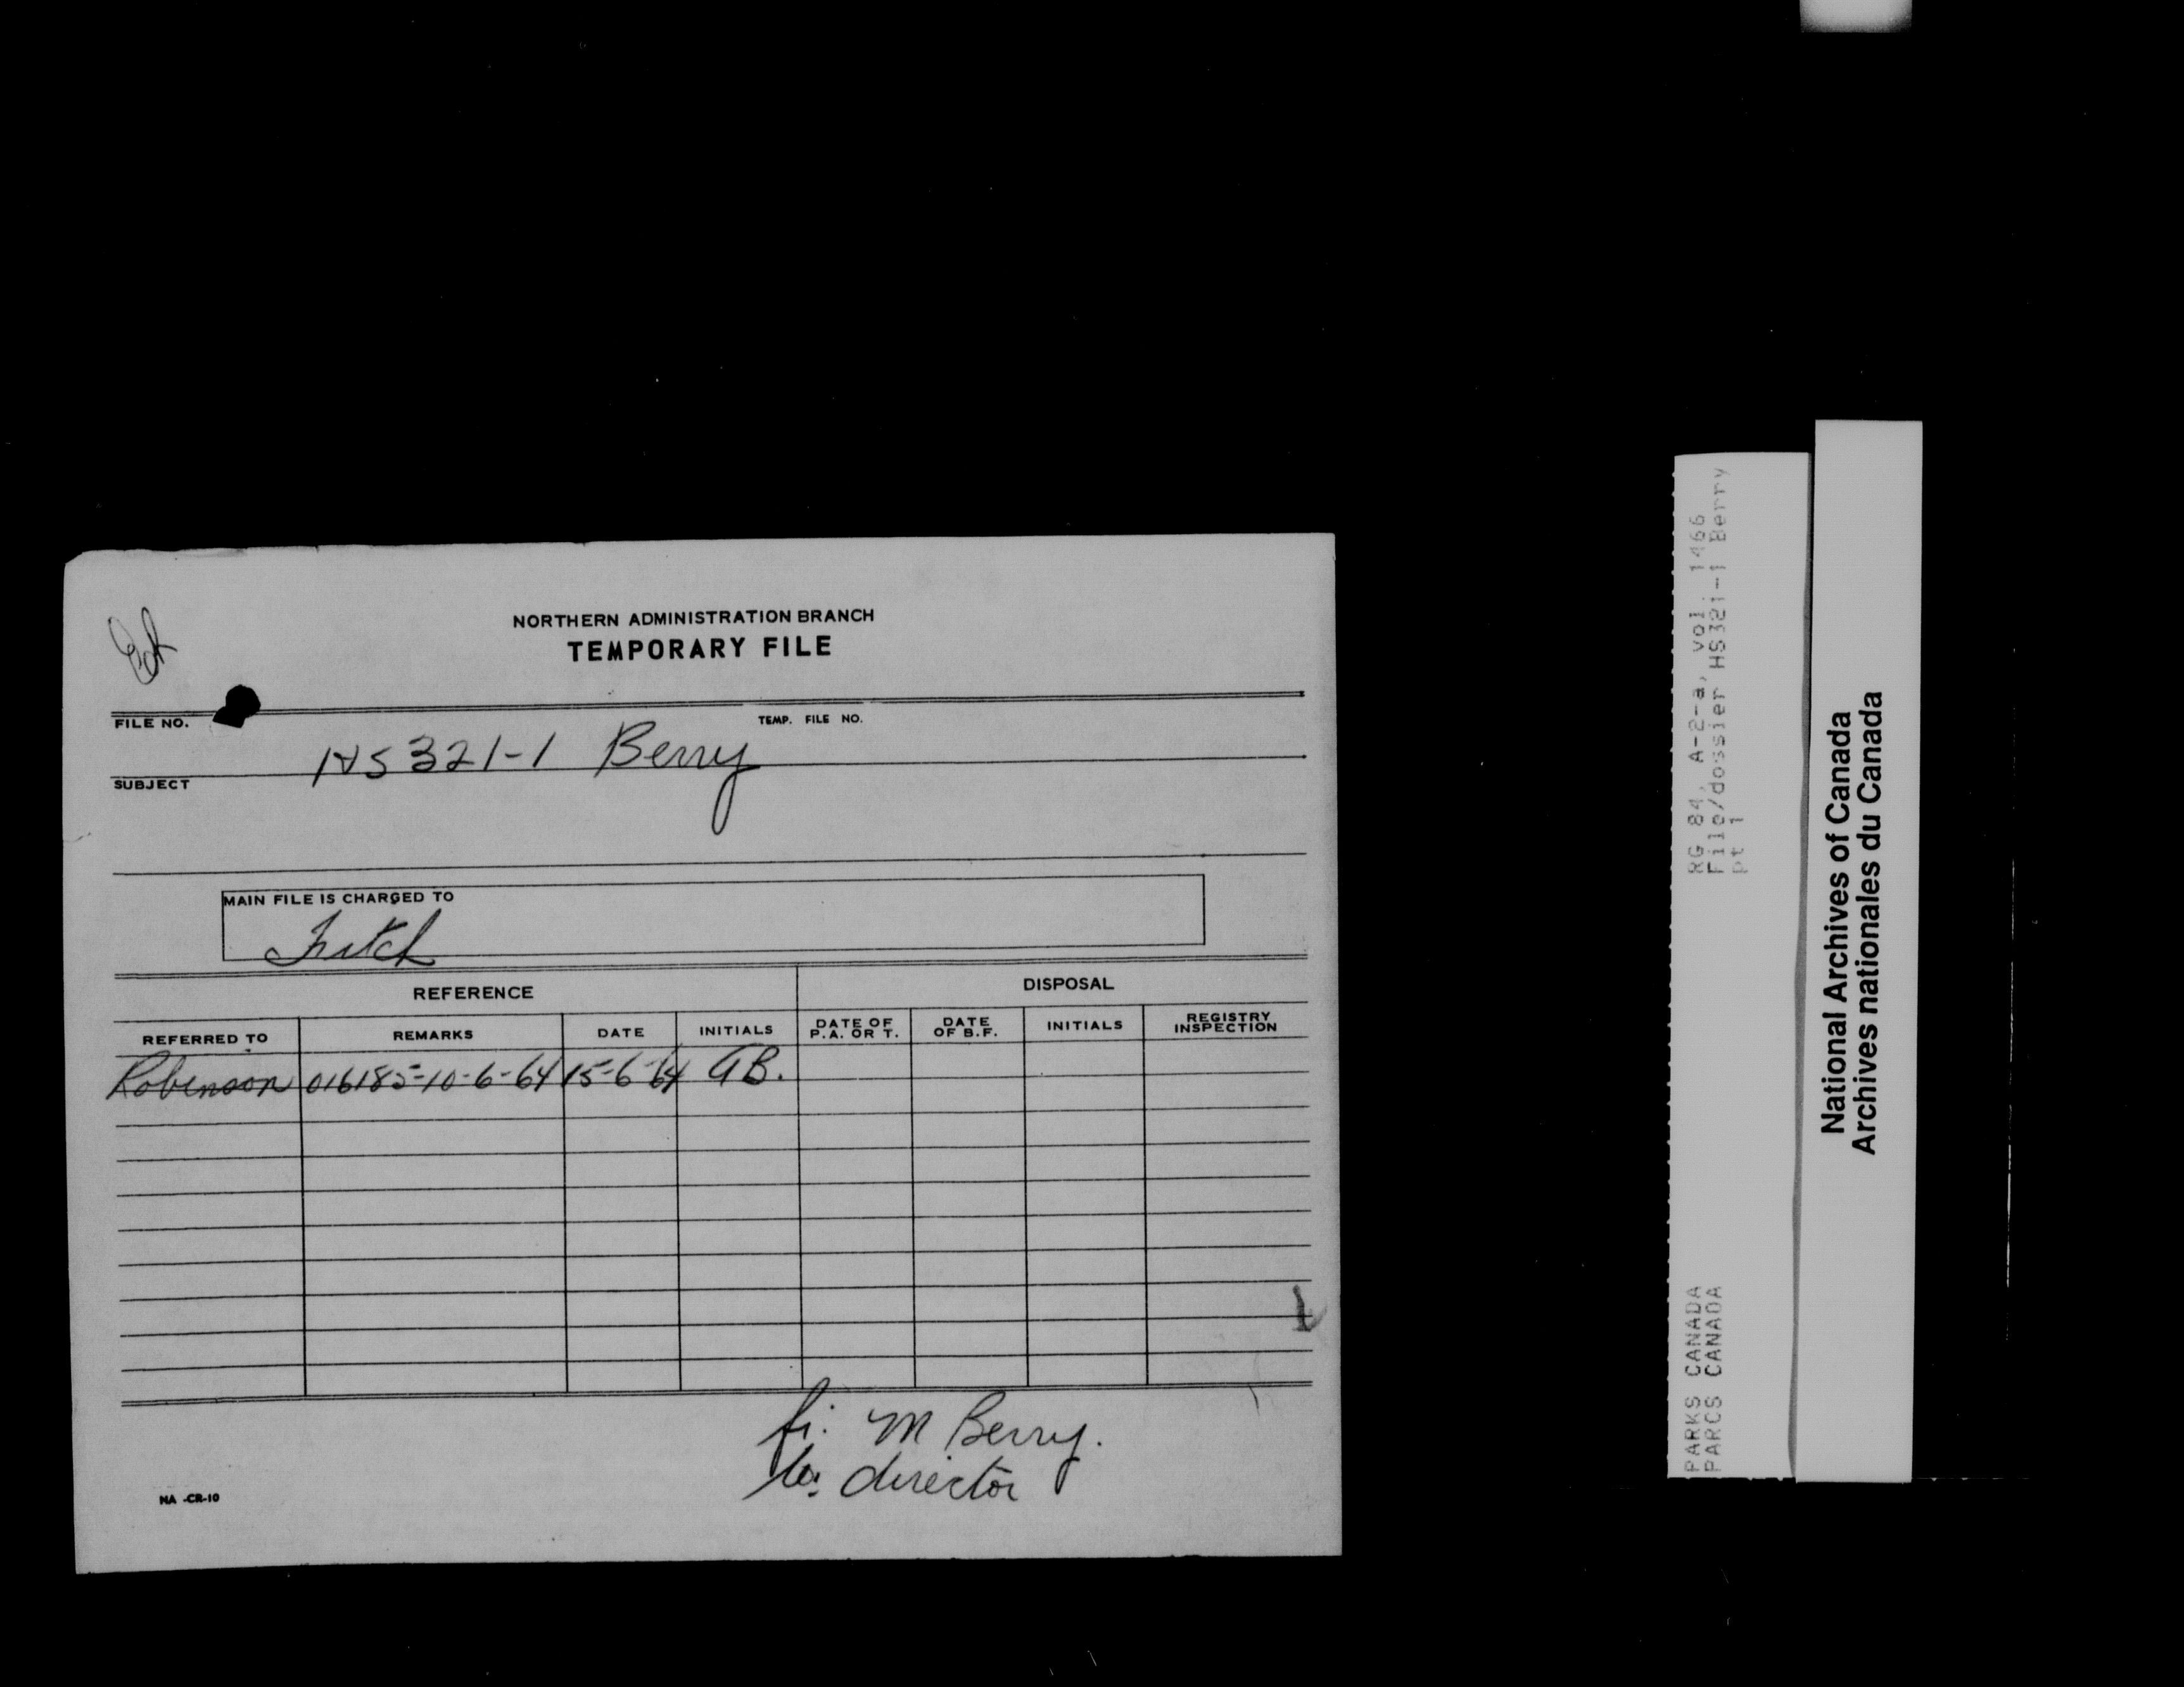 NORTHERN ADMINISTRATION BRANCH
TEMPORARY FILE
FILE NO.
TEMP. FILE NO.
HS 321-1 Berry
SUBJECT
MAIN FILE IS CHARGED TO
Fitch
REFERENCE
DISPOSAL
REFERRED TO REMARKS DATE INITIALS DATE OF P.A. OR T. DATE OF B.F. INITIALS REGISTRY INSPECTION
Robinson 016185-10-6-64 15-6-64 GB.
M Berry.
director
NA -CR-10
RG 84, A-2-a, vol. 1466
File/dossier HS321-1 Berry
pt 1
PARKS CANADA
PARCS CANADA
National Archives of Canada
Archives nationales du Canada